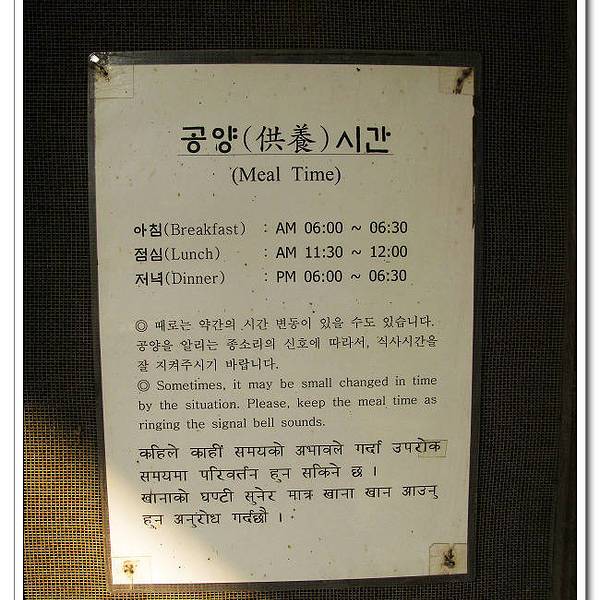 공양(供養)시간
(Meal Time)
아침(Breakfast) : AM 06:00 ~ 06:30
점심(Lunch) : AM 11:30 ~ 12:00
저녁(Dinner) : PM 06:00 ~ 06:30
◎ 때로는 약간의 시간 변동이 있을 수도 있습니다.
공양을 알리는 종소리의 신호에 따라서, 식사시간을
잘 지켜주시기 바랍니다.
◎ Sometimes, it may be small changed in time
by the situation. Please, keep the meal time as
ringing the signal bell sounds.
कहिले काहीं समयको अभावले गर्दा उपरोक
समयमा परिवर्तन हुन सकिने छ ।
खानाको घण्टी सुनेर मात्र खाना खान आउनु
हुन अनुरोध गर्दछौ ।